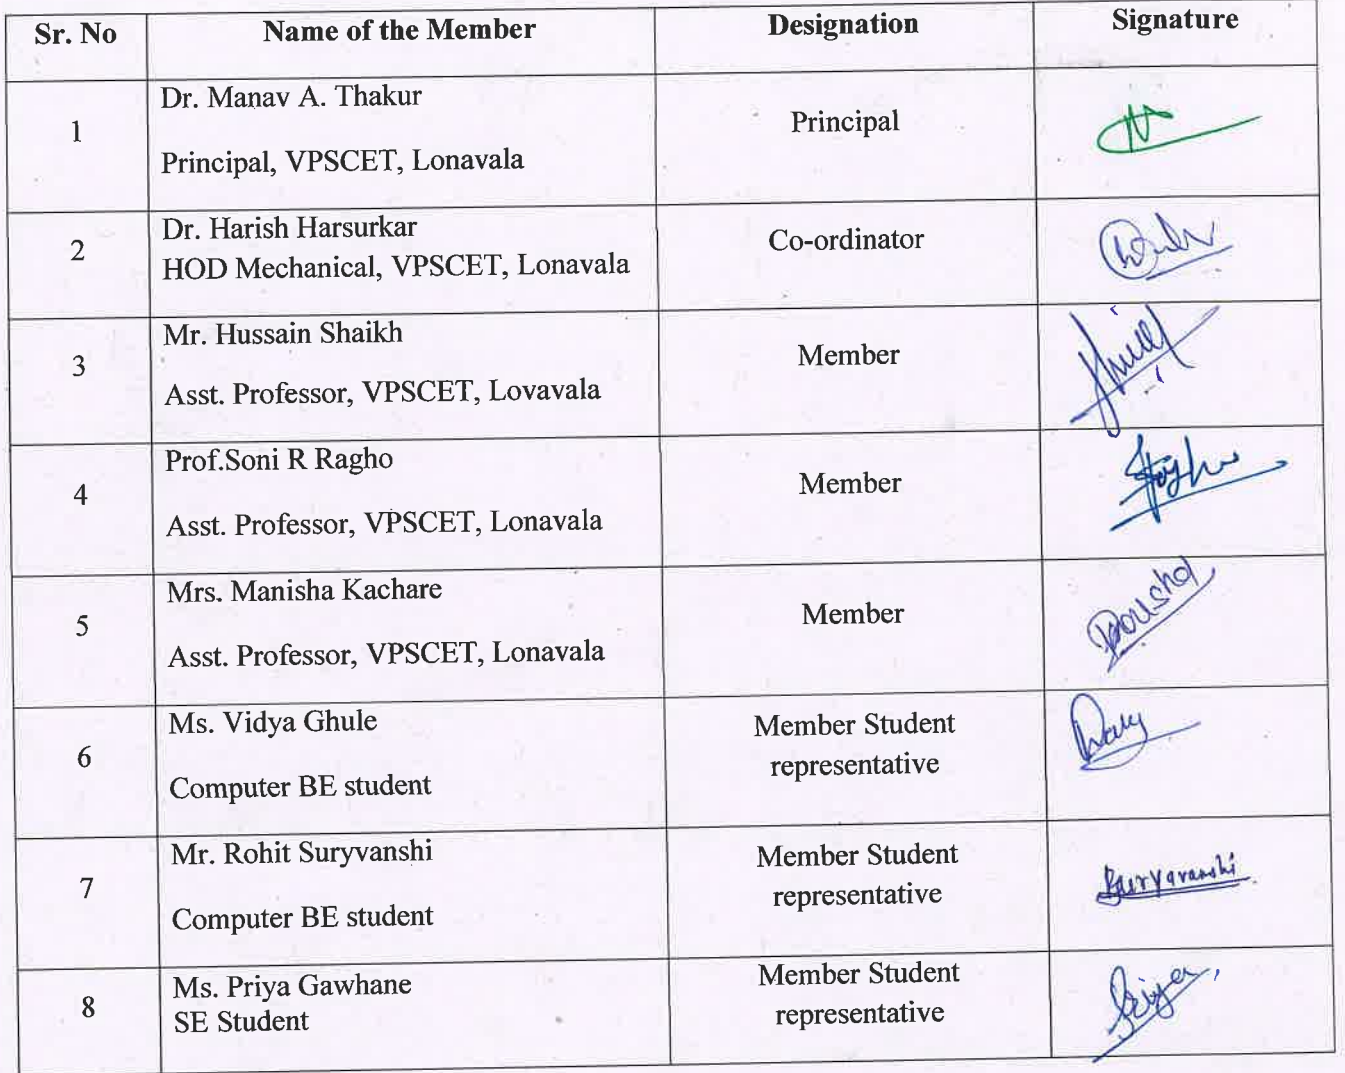 Sr. No Name of the Member Designation Signature
1
Dr. Manav A. Thakur
Principal, VPSCET, Lonavala
Principal
2
Dr. Harish Harsurkar
HOD Mechanical, VPSCET, Lonavala
Co-ordinator
3
Mr. Hussain Shaikh
Asst. Professor, VPSCET, Lovavala
Member
4
Prof.Soni R Ragho
Asst. Professor, VPSCET, Lonavala
Member
5
Mrs. Manisha Kachare
Asst. Professor, VPSCET, Lonavala
Member
6
Ms. Vidya Ghule
Computer BE student
Member Student
representative
7
Mr. Rohit Suryvanshi
Computer BE student
Member Student
representative
Suryavanshi
8
Ms. Priya Gawhane
SE Student
Member Student
representative
Priya